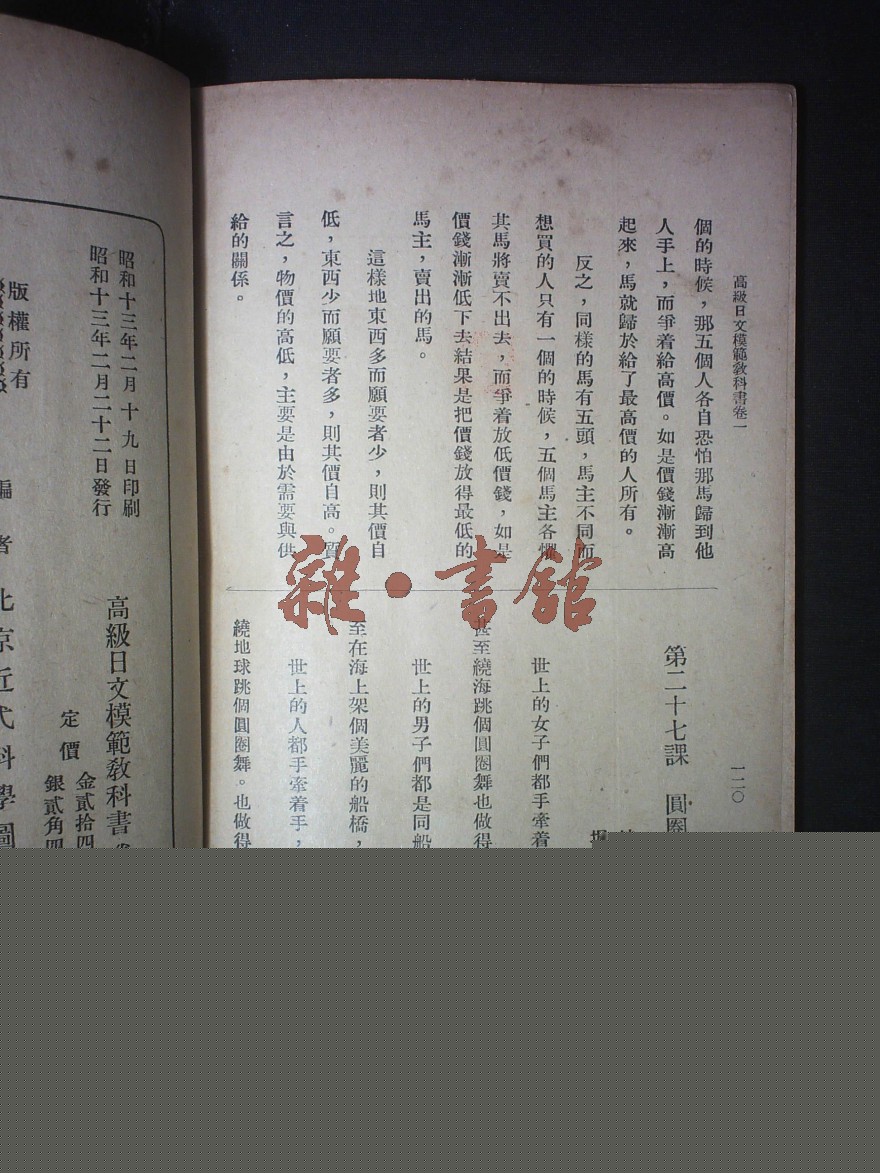 高級日文模範教科書卷一
一二〇
個的時候，那五個人各自恐怕那馬歸到他
人手上，而爭着給高價。如是價錢漸漸高
起來，馬就歸於給了最高價的人所有。
反之，同樣的馬有五頭，馬主不同而
想買的人只有一個的時候，五個馬主各懼
其馬將賣不出去，而爭着放低價錢，如是
價錢漸漸低下去結果是把價錢放得最低的
馬主，賣出的馬。
這樣地東西多而願要者少，則其價自
低，東西少而願要者多，則其價自高。質
言之，物價的高低，主要是由於需要與供
給的關係。
第二十七課　圓圈
世上的女子們都手牽着
甚至繞海跳個圓圈舞也做得
世上的男子們都是同船
至在海上架個美麗的船橋，
世上的人都手牽着手，
繞地球跳個圓圈舞。也做得
雜・書館
昭和十三年二月十九日印刷
昭和十三年二月二十二日發行
高級日文模範教科書
定價
金貳拾四
銀貳角四
版權所有
編者
北京近代科學圖